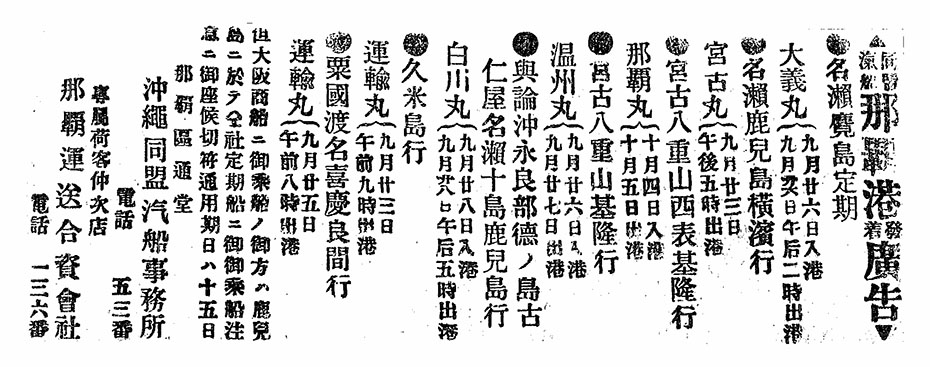 同盟汽船那覇港發着廣告
●名瀨麑島定期
大義丸 九月廿六日入港
九月廿八日午后二時出港
●名瀨鹿兒島橫濱行
宮古丸 九月廿三日
午後五時出港
●宮古八重山西表基隆行
那覇丸 十月四日入港
十月五日出港
●宮古八重山基隆行
温州丸 九月廿六日入港
九月廿七日出港
●與論沖永良部德ノ島古
仁屋名瀨十島鹿兒島行
白川丸 九月廿八日入港
九月廿八日午后五時出港
●久米島行
運輸丸 九月廿三日
午前九時出港
●粟國渡名喜慶良間行
運輸丸 九月廿五日
午前八時出港
但大阪商船ニ御乘船ノ御方ハ鹿兒
島ニ於テ仝社定期船ニ御乘船注
意ニ御座候切符通用期日ハ十五日
那覇區通堂
沖繩同盟汽船事務所
電話 五三番
專屬荷客仲次店
那覇運送合資會社
電話 一三六番